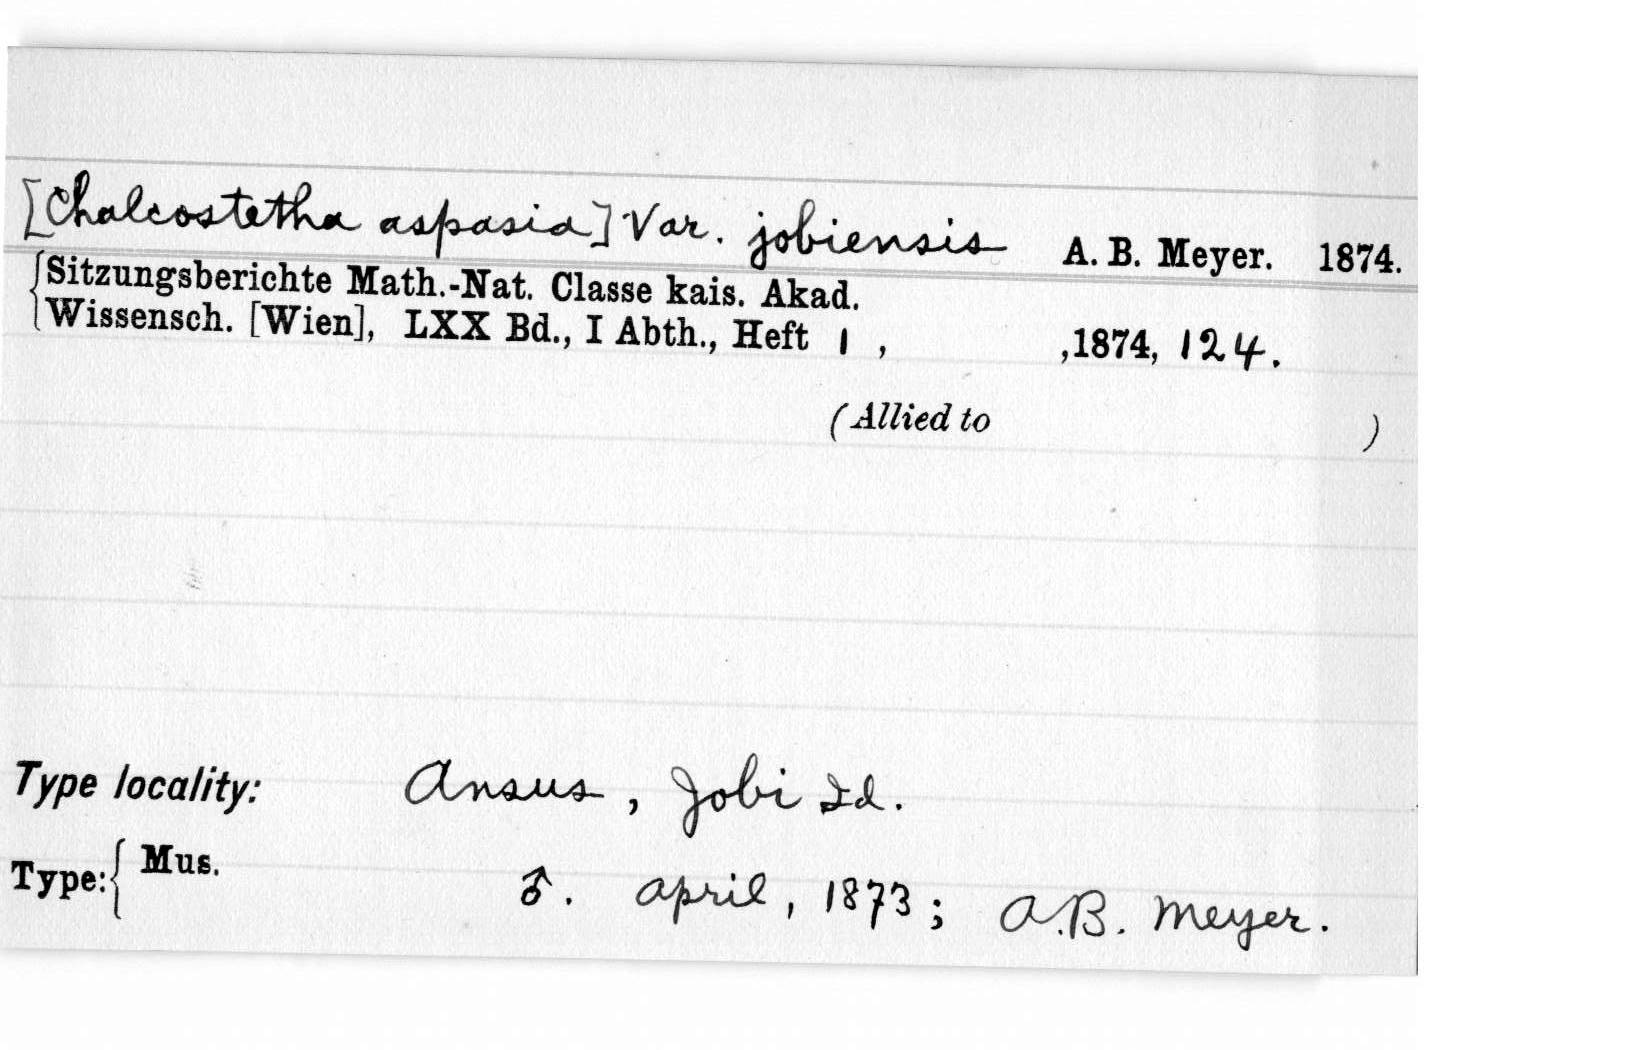 [Chalcostetha aspasia] Var. jobiensis A. B. Meyer. 1874.
Sitzungsberichte Math.-Nat. Classe kais. Akad.
Wissensch. [Wien], LXX Bd., I Abth., Heft 1 , ,1874, 124.
(Allied to )
Type locality: Ansus, Jobi Id.
Type: { Mus. ♂. April, 1873; A.B. Meyer.